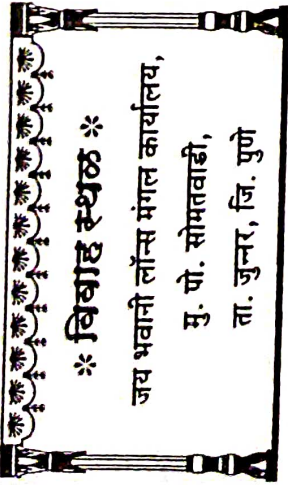 * विवाह स्थळ *
जय भवानी लॉन्स मंगल कार्यालय,
मु. पो. सोमतवाडी,
ता. जुन्नर, जि. पुणे